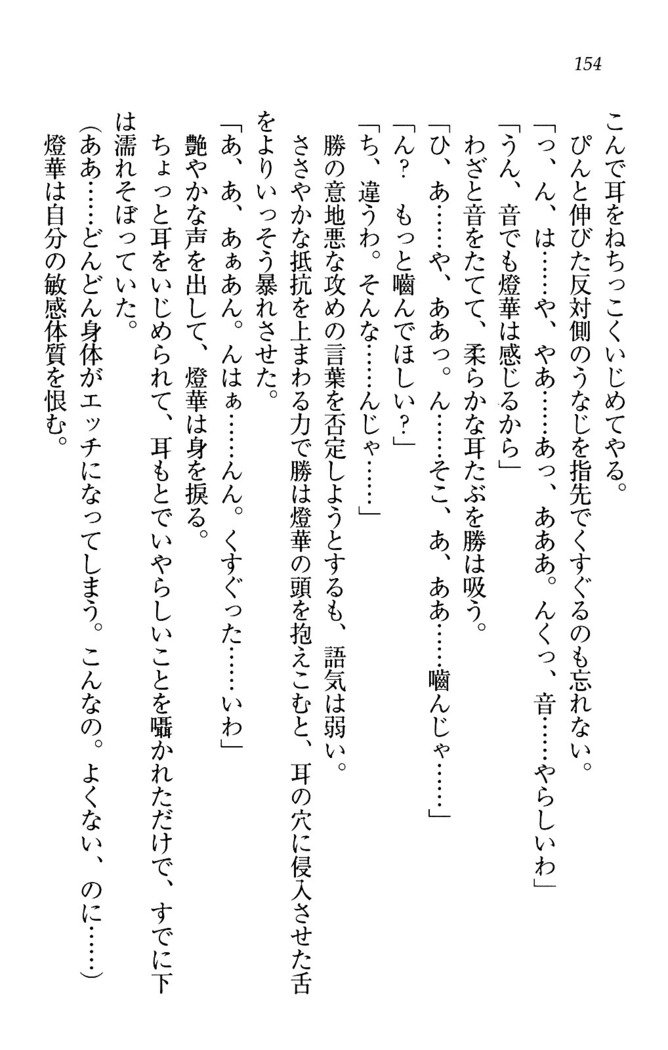 154
こんで耳をねちっこくいじめてやる。
ぴんと伸びた反対側のうなじを指先でくすぐるのも忘れない。
「っ、ん、は……や、やあ……あっ、あああ。んくっ、音……やらしいわ」
「うん、音でも燈華は感じるから」
わざと音をたてて、柔らかな耳たぶを勝は吸う。
「ひ、あ……や、ああっ。ん……そこ、あ、ああ……嚙んじゃ……」
「ん？　もっと嚙んでほしい？」
「ち、違うわ。そんな……んじゃ……」
勝の意地悪な攻めの言葉を否定しようとするも、語気は弱い。
ささやかな抵抗を上まわる力で勝は燈華の頭を抱えこむと、耳の穴に侵入させた舌
をよりいっそう暴れさせた。
「あ、あ、あぁあん。んはぁ……んん。くすぐった……いわ」
艶やかな声を出して、燈華は身を捩る。
ちょっと耳をいじめられて、耳もとでいやらしいことを囁かれただけで、すでに下
は濡れそぼっていた。
（ああ……どんどん身体がエッチになってしまう。こんなの。よくない、のに……）
燈華は自分の敏感体質を恨む。